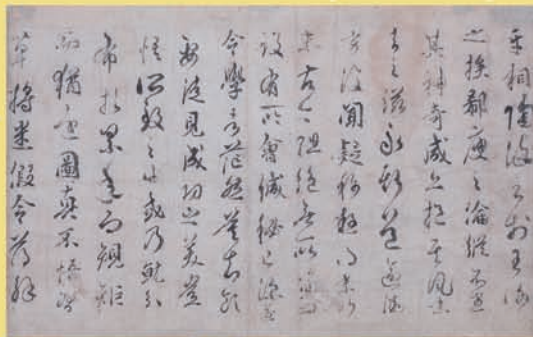 互相陶染至於王謝
之族郗庾之倫縱不盡
其神奇咸亦挹其風味
去之滋永斯道愈微
方復聞疑稱疑得末行
末古今阻絕無所質問
設有所會緘秘已深遂
令學者茫然莫知領
要徒見成功之美不
悟所致之由或乃就分
布於累年向規矩
而猶遠圖真不悟習
草將迷假令薄解